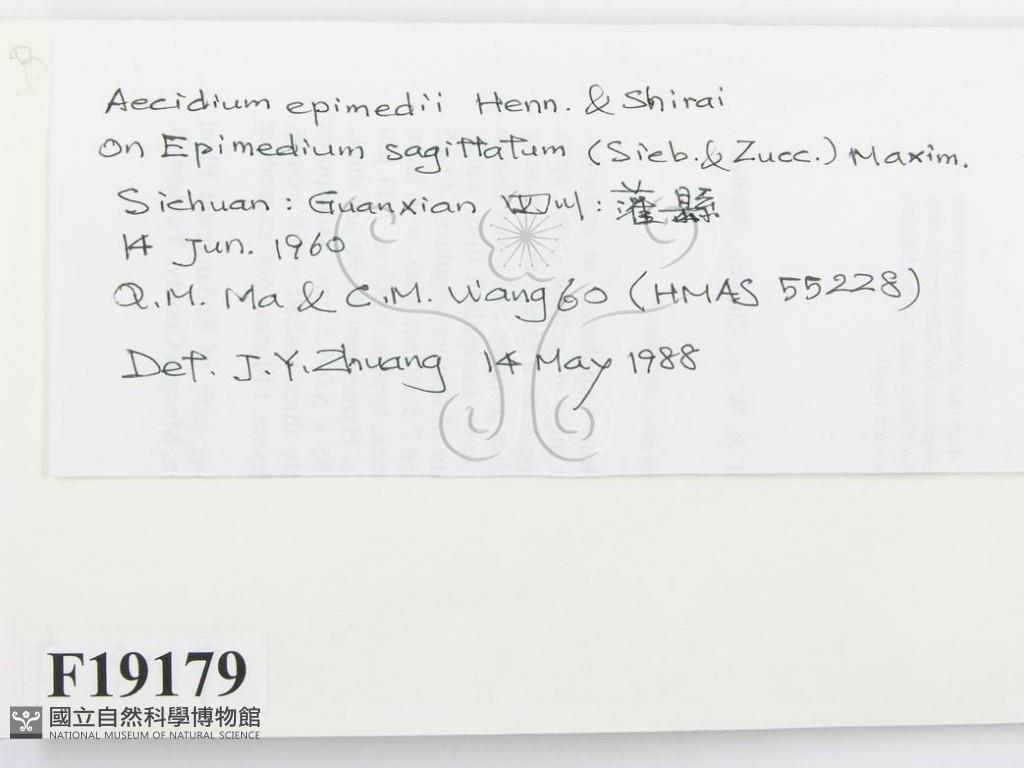 Aecidium epimedii Henn. & Shirai
on Epimedium sagittatum (Sieb. & Zucc.) Maxim.
Sichuan: Guanxian 四川: 灌縣
14 Jun. 1960
Q.M. Ma & C.M. Wang 60 (HMAS 55228)
Det. J.Y. Zhuang 14 May 1988
F19179
國立自然科學博物館
NATIONAL MUSEUM OF NATURAL SCIENCE